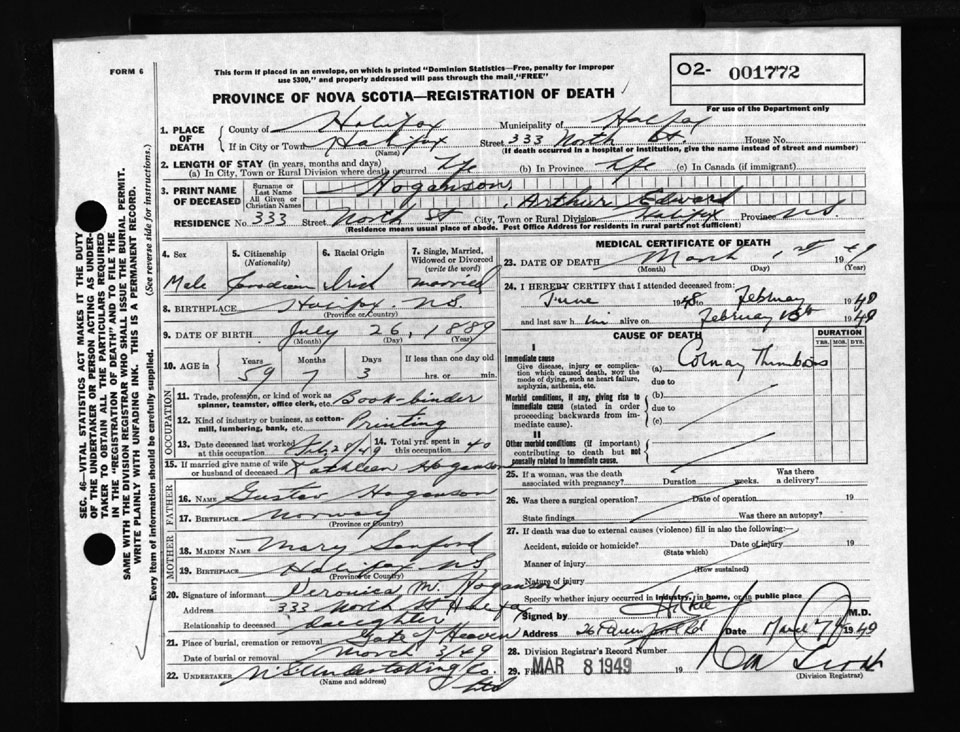 FORM 6
This form if placed in an envelope, on which is printed "Dominion Statistics—Free, penalty for improper
use $300," and properly addressed will pass through the mail "FREE"
O2- 001772
For use of the Department only
PROVINCE OF NOVA SCOTIA—REGISTRATION OF DEATH
1. PLACE OF DEATH
County of Halifax Municipality of Halifax
If in City or Town Halifax (Name) Street 333 North St. House No.
(If death occurred in a hospital or institution, give the name instead of street and number)
2. LENGTH OF STAY (in years, months and days)
(a) In City, Town or Rural Division where death occurred Life (b) In Province Life (c) In Canada (if immigrant)
3. PRINT NAME OF DECEASED
Surname or Last Name Hoganson
All Given or Christian Names Arthur Edward
RESIDENCE No. 333 Street North St City, Town or Rural Division Halifax Province N.S.
(Residence means usual place of abode. Post Office Address for residents in rural parts not sufficient)
4. Sex Male
5. Citizenship (Nationality) Canadian
6. Racial Origin Irish
7. Single, Married, Widowed or Divorced (write the word) Married
8. BIRTHPLACE Halifax N.S.
(Province or Country)
9. DATE OF BIRTH July 26, 1889
(Month) (Day) (Year)
10. AGE in Years Months Days If less than one day old
59 7 3 hrs. or min.
OCCUPATION
11. Trade, profession, or kind of work as spinner, teamster, office clerk, etc. Book-binder
12. Kind of industry or business, as cotton-mill, lumbering, bank, etc. Printing
13. Date deceased last worked at this occupation Feb. 28/49
14. Total yrs. spent in this occupation 40
15. If married give name of wife or husband of deceased Kathleen Hoganson
FATHER
16. NAME Gustav Hoganson
17. BIRTHPLACE Norway
(Province or Country)
MOTHER
18. MAIDEN NAME Mary Sanford
19. BIRTHPLACE Halifax N.S.
(Province or Country)
20. Signature of informant Veronica M. Hoganson
Address 333 North St Halifax
Relationship to deceased daughter
21. Place of burial, cremation or removal Gate of Heaven
Date of burial or removal March 3/49
22. UNDERTAKER N.S. Undertaking Co. Ltd
(Name and address)
MEDICAL CERTIFICATE OF DEATH
23. DATE OF DEATH March 1st 1949
(Month) (Day) (Year)
24. I HEREBY CERTIFY that I attended deceased from:
June 1948 to February 1949
and last saw him alive on February 1949
CAUSE OF DEATH
DURATION
YRS. MOS. DYS.
I
Immediate cause
Give disease, injury or complication which caused death, not the mode of dying, such as heart failure, asphyxia, asthenia, etc.
(a) Coronary Thrombosis
due to
Morbid conditions, if any, giving rise to immediate cause (stated in order proceeding backwards from immediate cause).
(b)
due to
(c)
II
Other morbid conditions (if important) contributing to death but not causally related to immediate cause.
25. If a woman, was the death associated with pregnancy? Duration weeks. Was there a delivery?
26. Was there a surgical operation? Date of operation 19
State findings Was there an autopsy?
27. If death was due to external causes (violence) fill in also the following:—
Accident, suicide or homicide? Date of injury 19
(State which)
Manner of injury
(How sustained)
Nature of injury
Specify whether injury occurred in industry, in home, or in public place
Signed by M.D.
Address Date March 1949
28. Division Registrar's Record Number
29. Filed MAR 8 1949 19
(Division Registrar)
SEC. 46—VITAL STATISTICS ACT MAKES IT THE DUTY
OF THE UNDERTAKER OR PERSON ACTING AS UNDER-
TAKER TO OBTAIN ALL THE PARTICULARS REQUIRED
IN THE "REGISTRATION OF DEATH" AND TO FILE THE
SAME WITH THE DIVISION REGISTRAR WHO SHALL ISSUE THE BURIAL PERMIT.
WRITE PLAINLY WITH UNFADING INK. THIS IS A PERMANENT RECORD.
Every item of information should be carefully supplied. (See reverse side for instructions.)